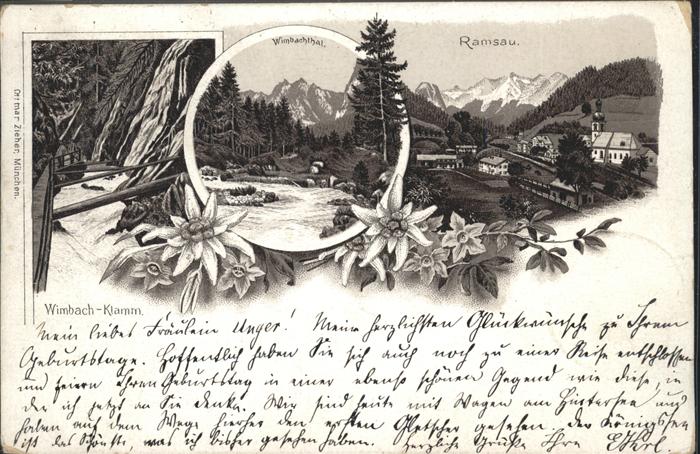 Wimbachthal.
Ramsau.
Ottmar Zieher, München.
Wimbach-Klamm.
Mein liebes Fräulein Unger! Meine herzlichsten Glückwünsche zu Ihrem
Geburtstage. Hoffentlich haben Sie sich auch noch zu einer Reise entschlossen
und feiern Ihren Geburtstag in einer ebenso schönen Gegend wie diese, in
der ich jetzt an Sie denke. Wir sind heute mit Wagen am Hintersee und
haben auf dem Wege hierher den ersten Gletscher gesehen. Der Königssee
ist das Schönste, was ich bisher gesehen haben. Herzliche Grüße Ihre